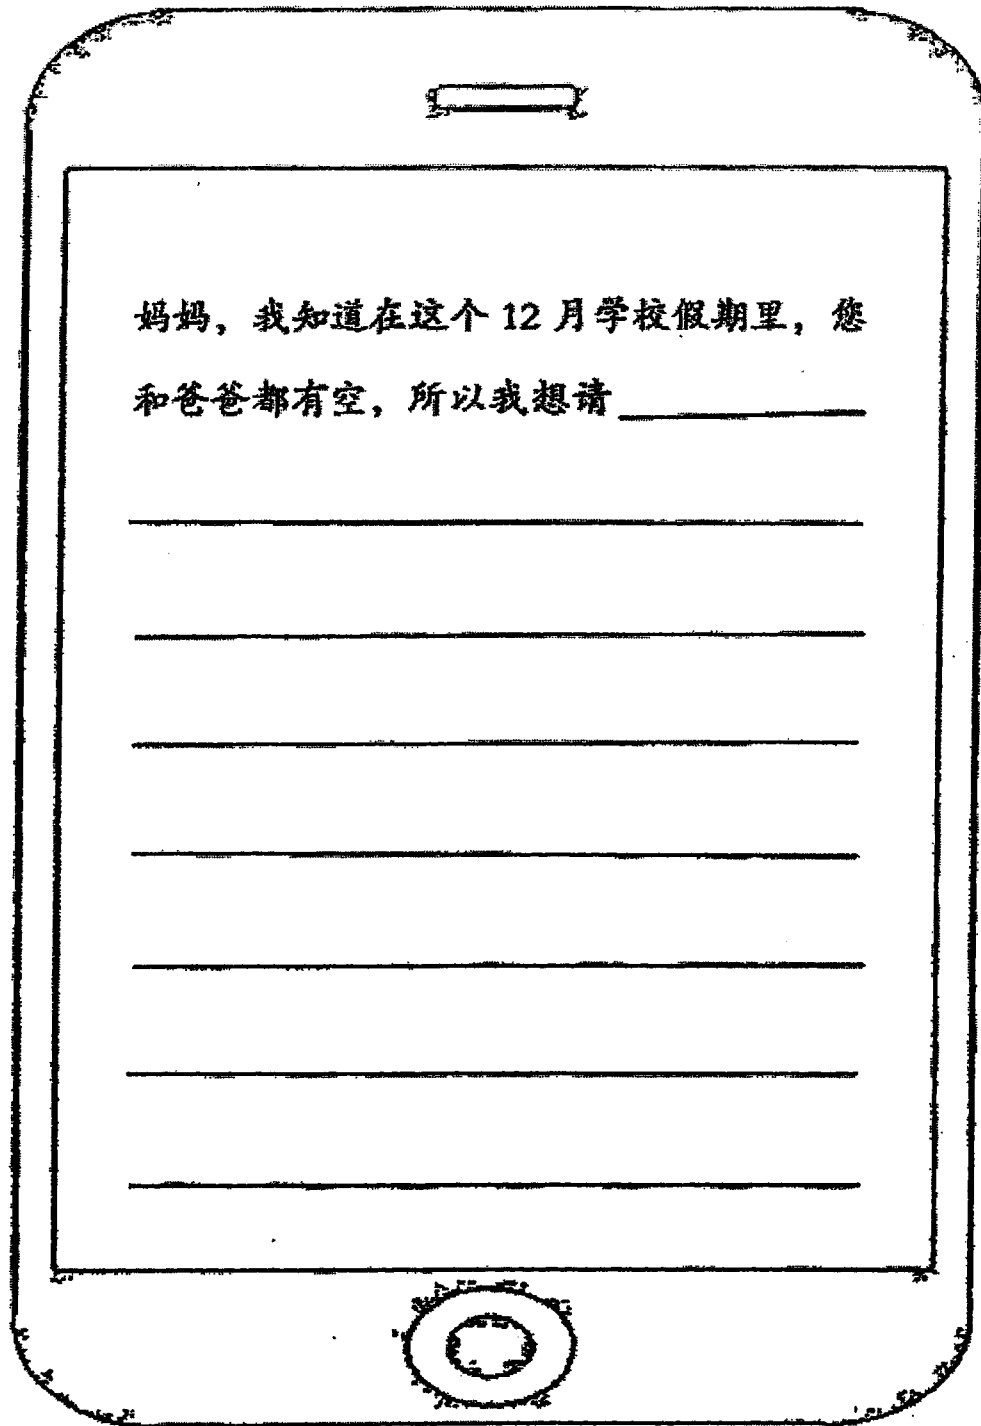 妈妈，我知道在这个 12 月学校假期里，您
和爸爸都有空，所以我想请